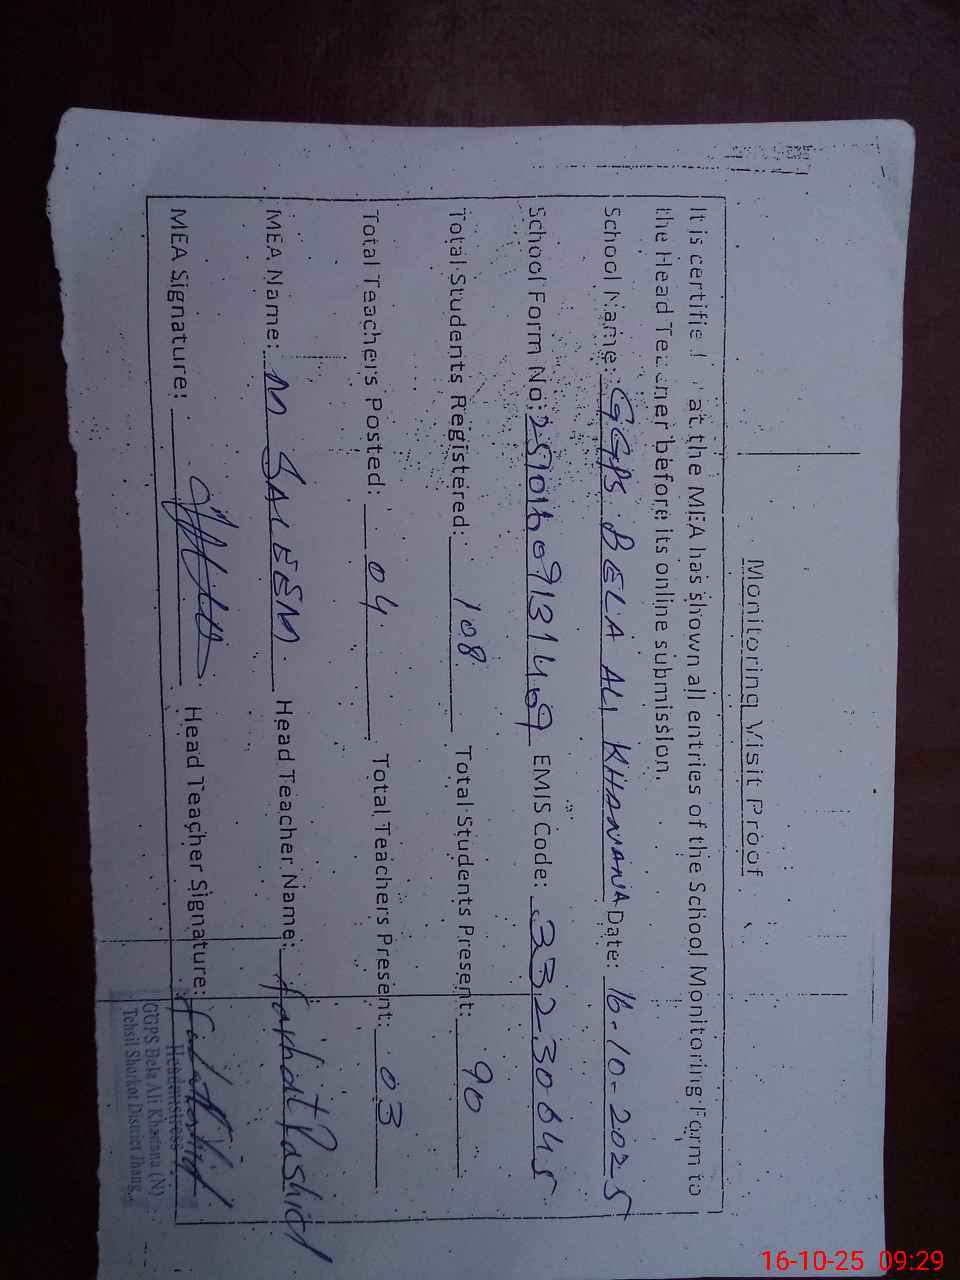 Monitoring Visit Proof
It is certified that the MEA has shown all entries of the School Monitoring Form to
the Head Teacher before its online submission.
School Name: GGPS BELA ALI KHANANA Date: 16-10-2025
School Form No: EMIS Code: 33230645
Total Students Registered: 108 Total Students Present: 90
Total Teachers Posted: 04 Total Teachers Present: 03
MEA Name: M SALEEM. Head Teacher Name: Farhat Rashid
MEA Signature: Head Teacher Signature:
Headmistress
GGPS Bela Ali Khanana (N)
Tehsil Shorkot District Jhang.
16-10-25 09:29